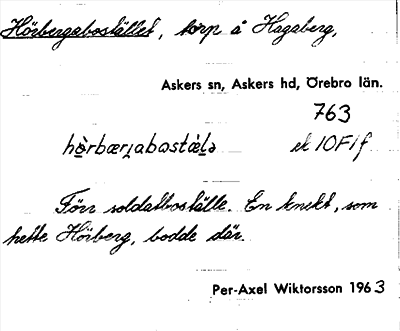 Hörbergabostället, torp å Hagaberg,
Askers sn, Askers hd, Örebro län.
763
ek 10F1f
Förr soldatboställe. En knekt, som
hette Hörberg, bodde där.
Per-Axel Wiktorsson 1963